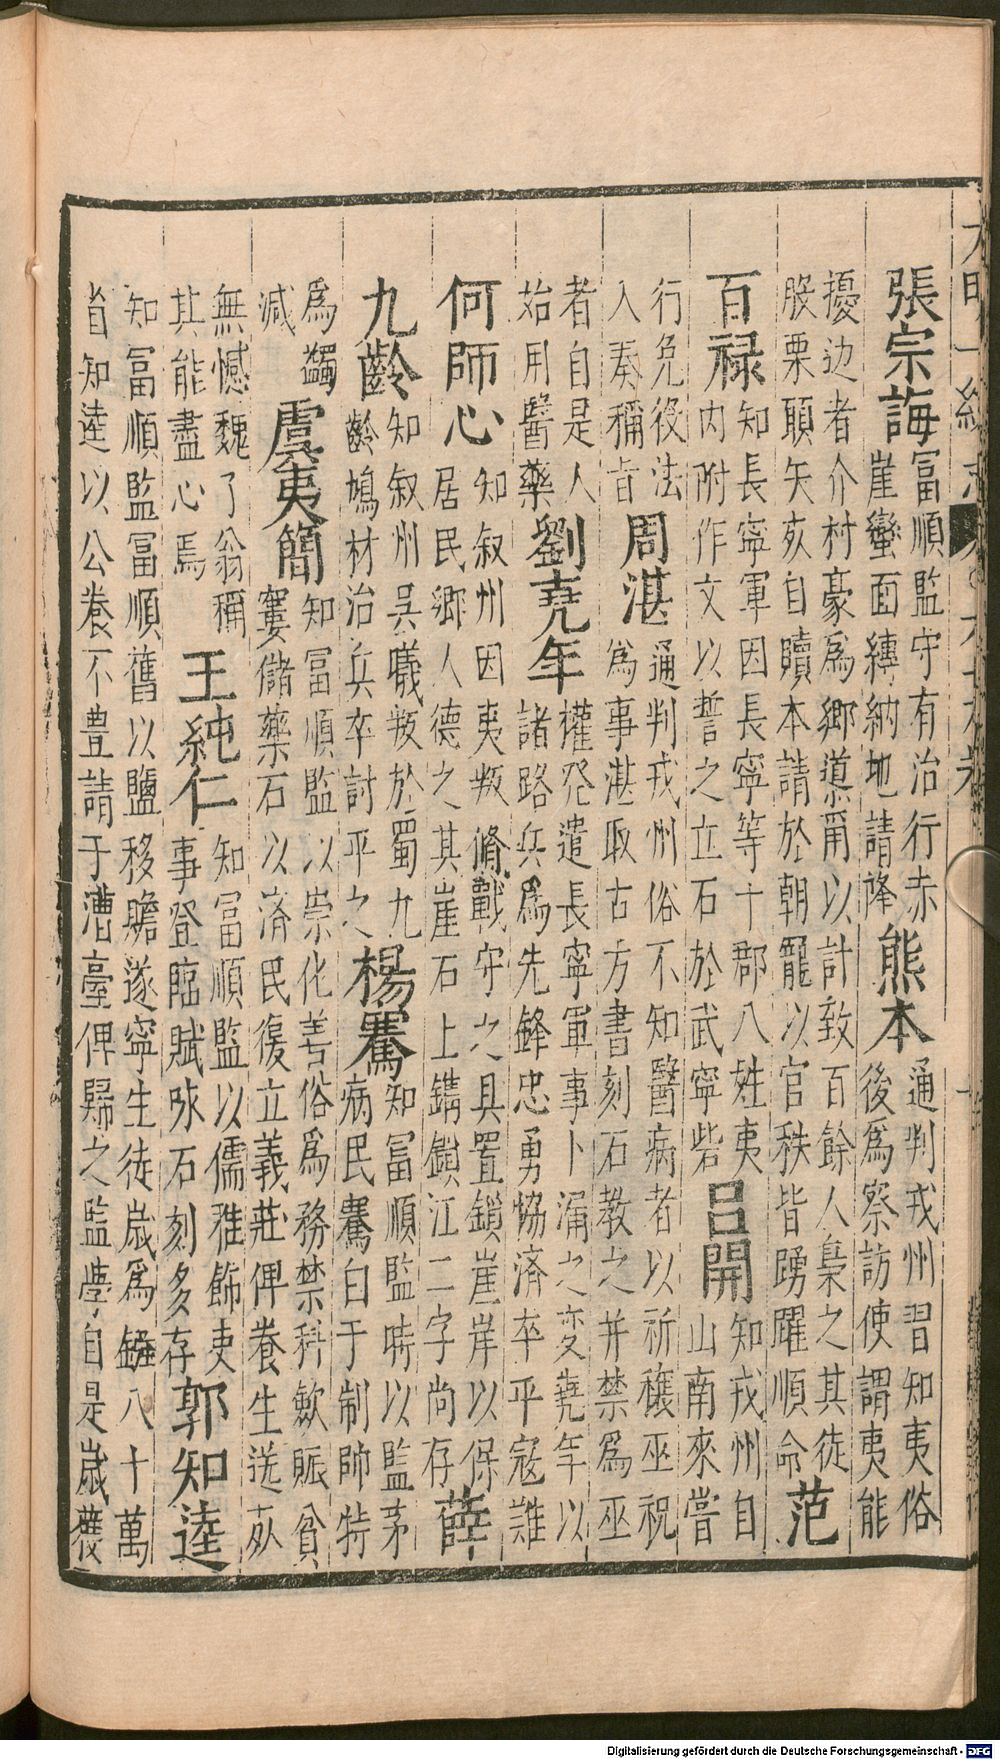 大明一統志
張宗誨
冨順監守有治行赤
崖蠻面縛納地請降
熊本
通判戎州習知夷俗
後為察訪使謂夷能
擾边者介村豪為鄉導爾以計致百餘人梟之其徒
股栗願矢死自贖本請於朝寵以官秩皆踴躍順命
范
百禄
知長寧軍因長寧等十郡八姓夷
内附作文以誓之立石於武寧砦
呂開
知戎州自
山南來嘗
行免役法
入奏稱旨
周湛
通判戎州俗不知醫病者以祈禳巫祝
為事湛取古方書刻石教之并禁為巫
者自是人
始用醫藥
劉堯年
權發遣長寧軍事卜漏之变堯年以
諸路兵為先鋒忠勇恊濟卒平寇難
何師心
知叙州因夷叛脩戰守之具置鎖崖岸以保
居民鄉人德之其崖石上鐫鎖江二字尚存
薛
九齡
知叙州呉曦叛於蜀九
齡鳩材治兵卒討平之
楊騫
知冨順監時以監茅
病民騫白于制帥特
為蠲
減
虞夷簡
知冨順監以崇化善俗為務禁科歛賑貧
窶儲藥石以濟民復立義莊俾養生送死
無憾魏了翁稱
其能盡心焉
王純仁
知冨順監以儒雅飾吏
事登臨賦咏石刻多存
郭知逵
知冨順監冨順舊以鹽移贍遂寧生徒歲為鏹八十萬
首知逵以公養不豊請于漕臺俾歸之監學自是歲獲
Digitalisierung gefördert durch die Deutsche Forschungsgemeinschaft - DFG